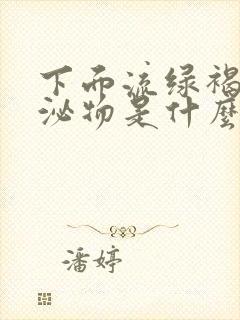 下面流绿褐
泌物是什麼
潘婷